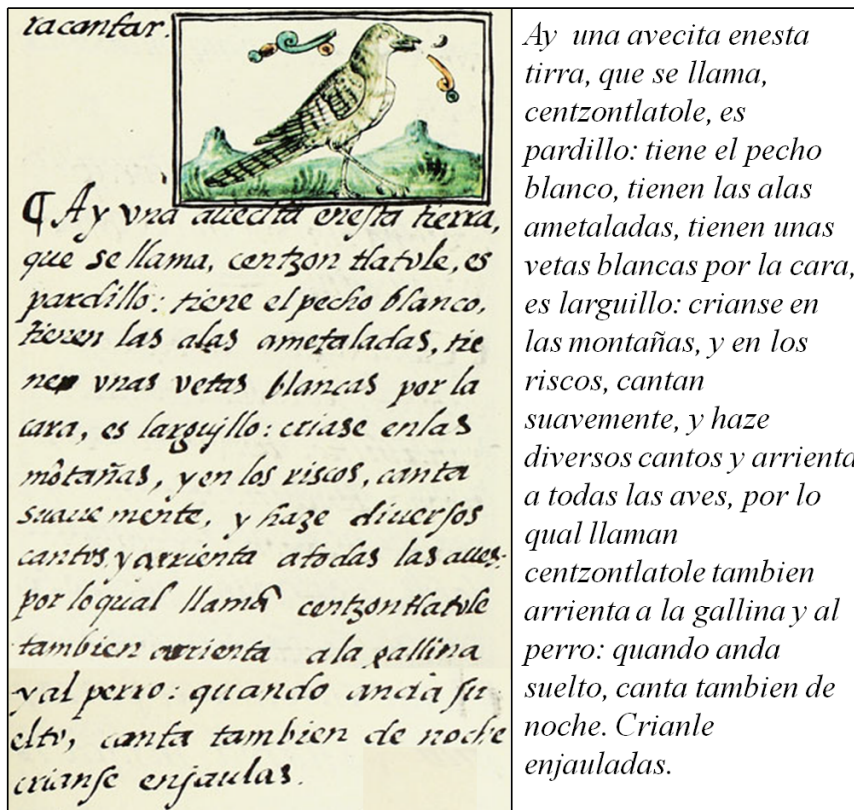 ra cantar.
¶ Ay vna auecita enesta tierra,
que se llama, centzon tlatole, es
pardillo: tiene el pecho blanco,
tienen las alas ametaladas, tie
nen vnas vetas blancas por la
cara, es larguillo: criase enlas
mõtañas, y en los riscos, canta
suaue mente, y haze diuersos
cantos, y arrienta atodas las aues:
por lo qual llamã centzontlatole
tambien arrienta ala gallina
y al perro: quando anda su
elto, canta tambien de noche
crianse enjaulas.
Ay una avecita enesta
tirra, que se llama,
centzontlatole, es
pardillo: tiene el pecho
blanco, tienen las alas
ametaladas, tienen unas
vetas blancas por la cara,
es larguillo: crianse en
las montañas, y en los
riscos, cantan
suavemente, y haze
diversos cantos y arrienta
a todas las aves, por lo
qual llaman
centzontlatole tambien
arrienta a la gallina y al
perro: quando anda
suelto, canta tambien de
noche. Crianle
enjauladas.